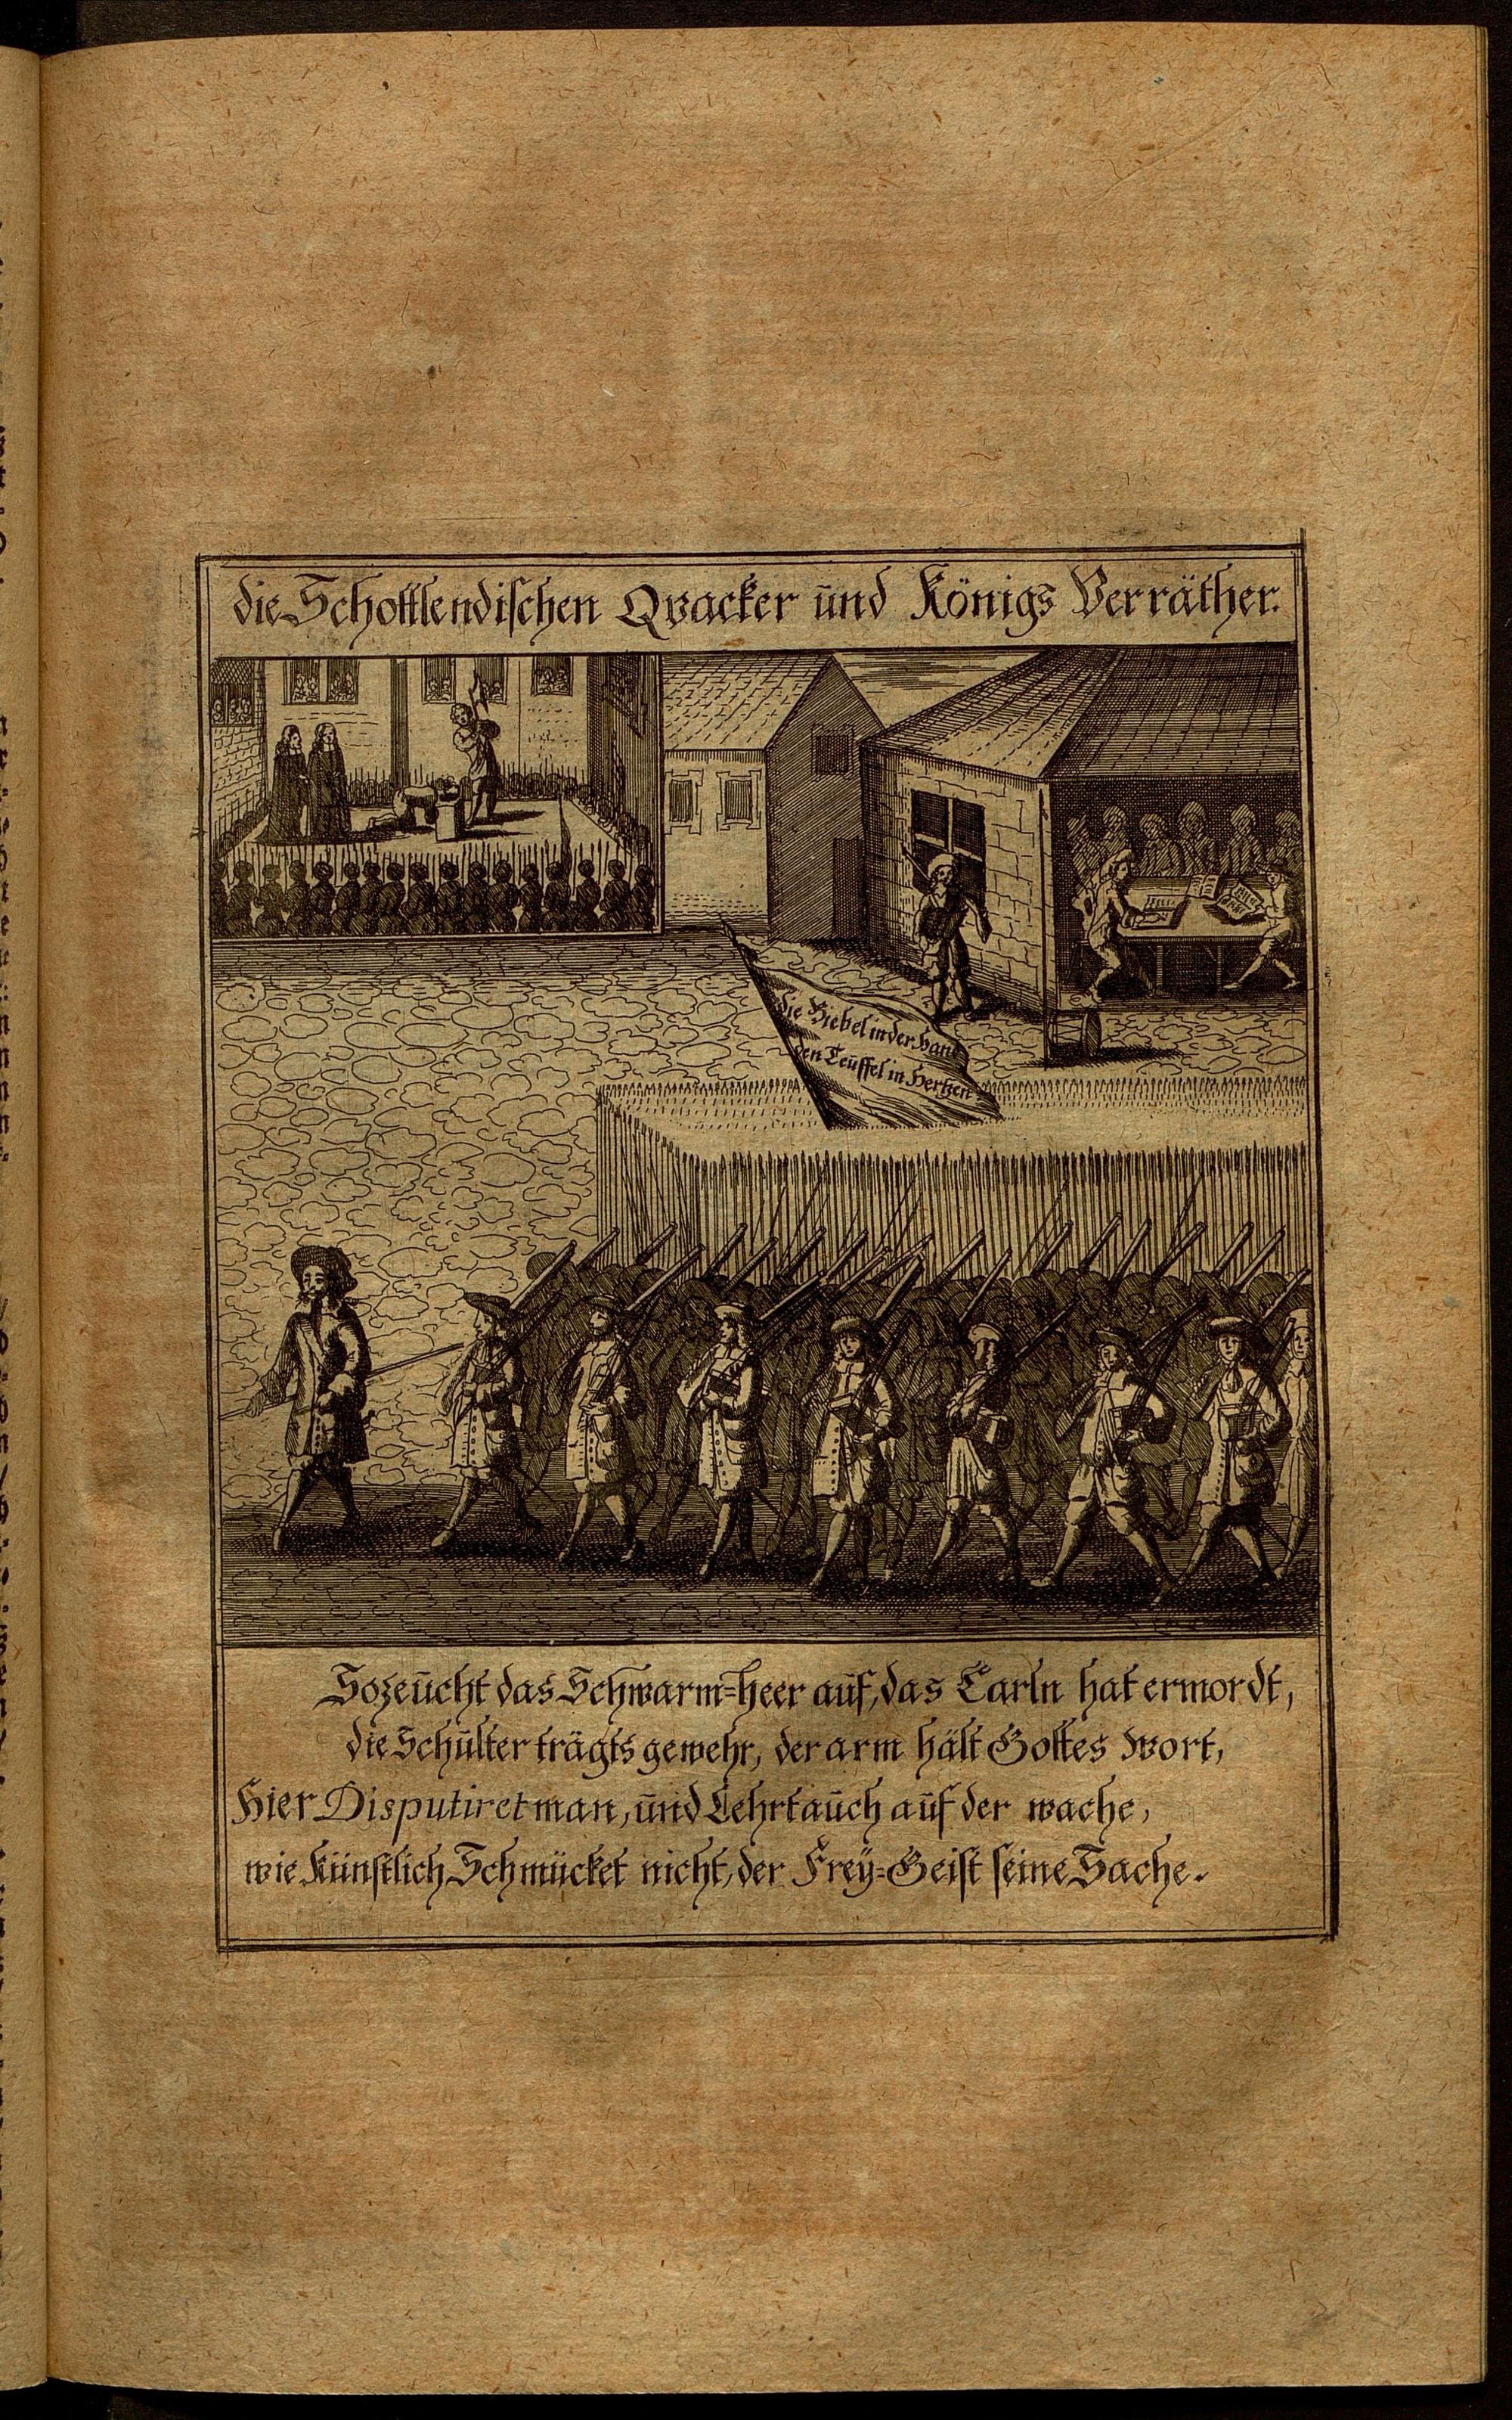 die Schottlendischen Qvacker ünd Königs Verräther.
die Biebel in der Hand
den Teüffel in Hertzen
So zeücht das Schwarm=heer aüf, das Carln hat ermordt,
die Schülter trägts gewehr, der arm hält Gottes wort,
Hier Disputiret man, ünd Lehrt aüch aüf der wache,
wie Künstlich Schmücket nicht, der Freÿ=Geist seine Sache.